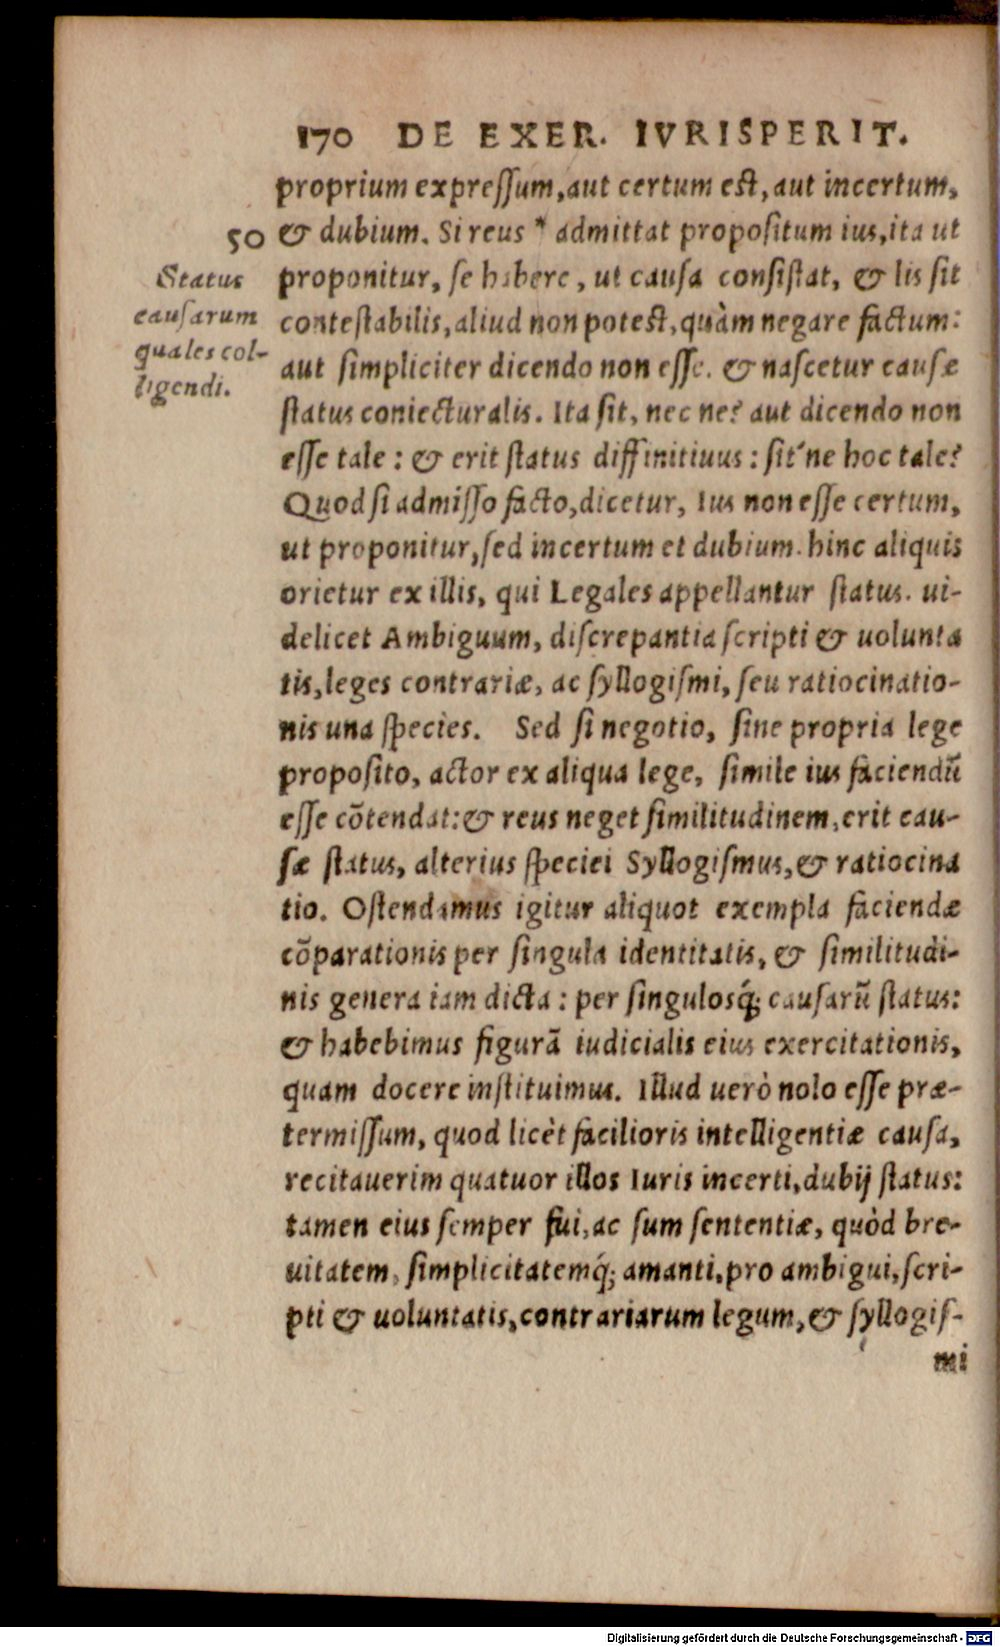 170 DE EXER. IVRISPERIT.
proprium expreſſum, aut certum est, aut incertum,
50 & dubium. Si reus * admittat propoſitum ius, ita ut
Status
cauſarum
quales col-
ligendi.
proponitur, ſe habere, ut cauſa conſiſtat, & lis ſit
conteſtabilis, aliud non potest, quàm negare factum:
aut ſimpliciter dicendo non eſſe. & naſcetur cauſæ
ſtatus coniecturalis. Ita ſit, nec ne? aut dicendo non
eſſe tale: & erit ſtatus diffinitiuus: ſit'ne hoc tale?
Quod ſi admiſſo facto, dicetur, Ius non eſſe certum,
ut proponitur, ſed incertum et dubium. hinc aliquis
orietur ex illis, qui Legales appellantur ſtatus. ui-
delicet Ambiguum, diſcrepantia ſcripti & uolunta
tis, leges contrariæ, ac ſyllogiſmi, ſeu ratiocinatio-
nis una ſpecies. Sed ſi negotio, ſine propria lege
propoſito, actor ex aliqua lege, ſimile ius faciendū
eſſe cōtendat: & reus neget ſimilitudinem, erit cau-
ſæ ſtatus, alterius ſpeciei Syllogiſmus, & ratiocina
tio. Oſtendamus igitur aliquot exempla faciendæ
cōparationis per ſingula identitatis, & ſimilitudi-
nis genera iam dicta: per ſingulosq́; cauſarū ſtatus:
& habebimus figurā iudicialis eius exercitationis,
quam docere inſtituimus. Illud uerò nolo eſſe præ-
termiſſum, quod licèt facilioris intelligentiæ cauſa,
recitauerim quatuor illos Iuris incerti, dubij ſtatus:
tamen eius ſemper fui, ac ſum ſententiæ, quòd bre-
uitatem, ſimplicitatemq́; amanti, pro ambigui, ſcri-
pti & uoluntatis, contrariarum legum, & ſyllogiſ-
mi
Digitalisierung gefördert durch die Deutsche Forschungsgemeinschaft - DFG